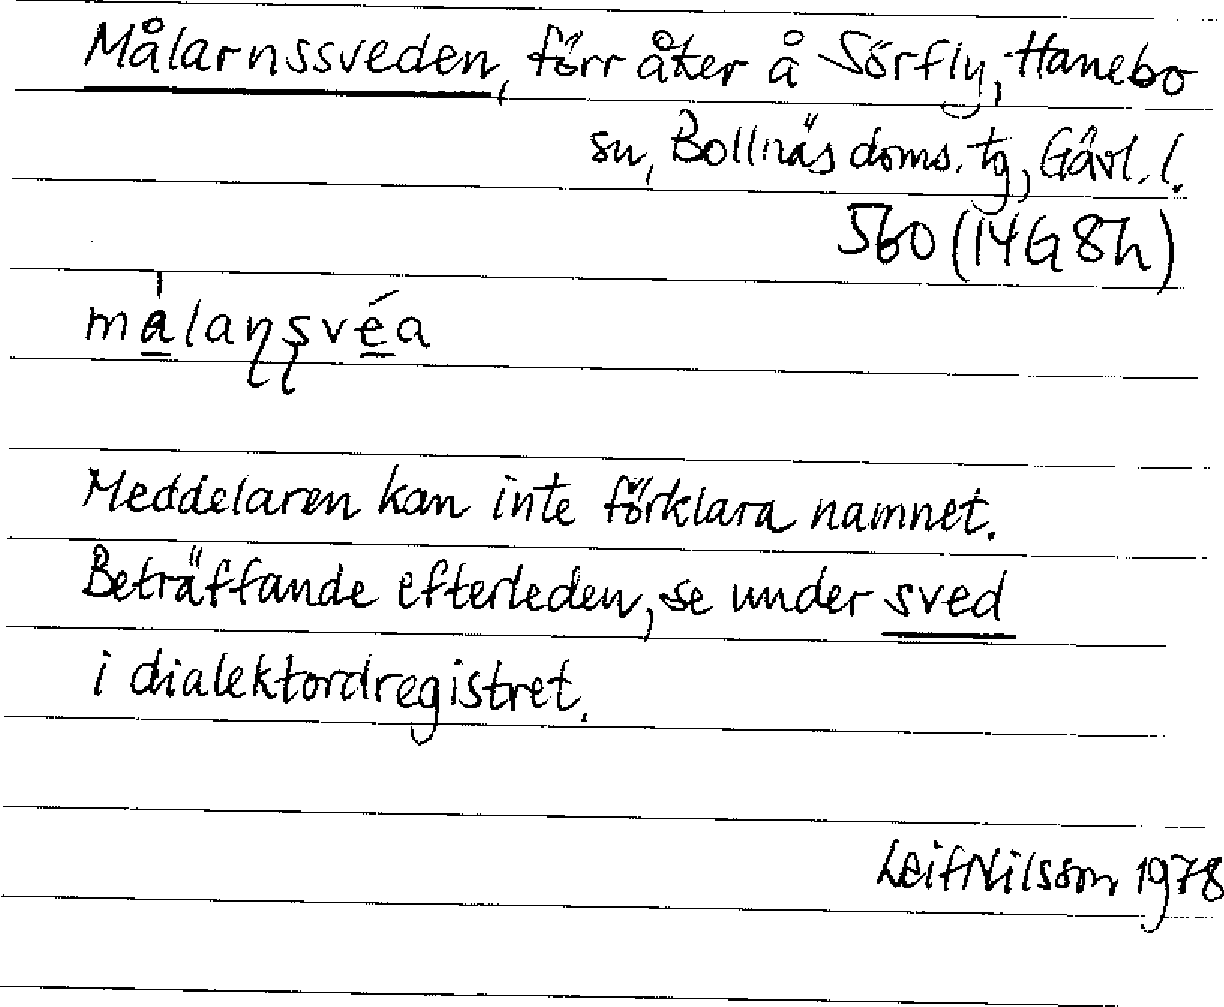 Målarnssveden, förr åker å Sörfly, Hanebo
sn, Bollnäs doms. tg, Gävl. l.
560 (14G 8h)
må̍laṇṣvéa
Meddelaren kan inte förklara namnet.
Beträffande efterleden, se under sved
i dialektordregistret.
Leif Nilsson 1978